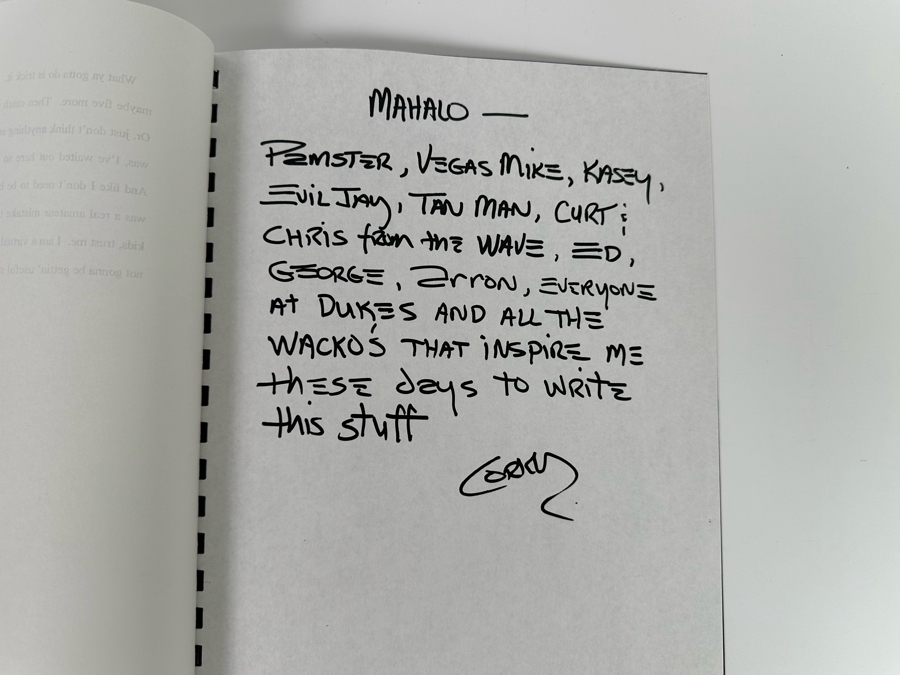 What ya gotta do is trick it,
maybe five more. Then
Or, just don't think anything
was. I've waited out here
And like I don't need to be
was a real amateur mistake
kids, trust me. I am a
not gonna be gettin' useful
MAHALO —
PaMSTER, VEGAS MiKE, KASEY,
EviL JAY, TAN MAN, CURT &
CHRiS from the WAVE, ED,
GEORGE, Arron, EVERYONE
AT DUKES AND ALL THE
WACKO'S THAT iNSPiRE ME
thESE days to WRitE
this stuff
CORKY